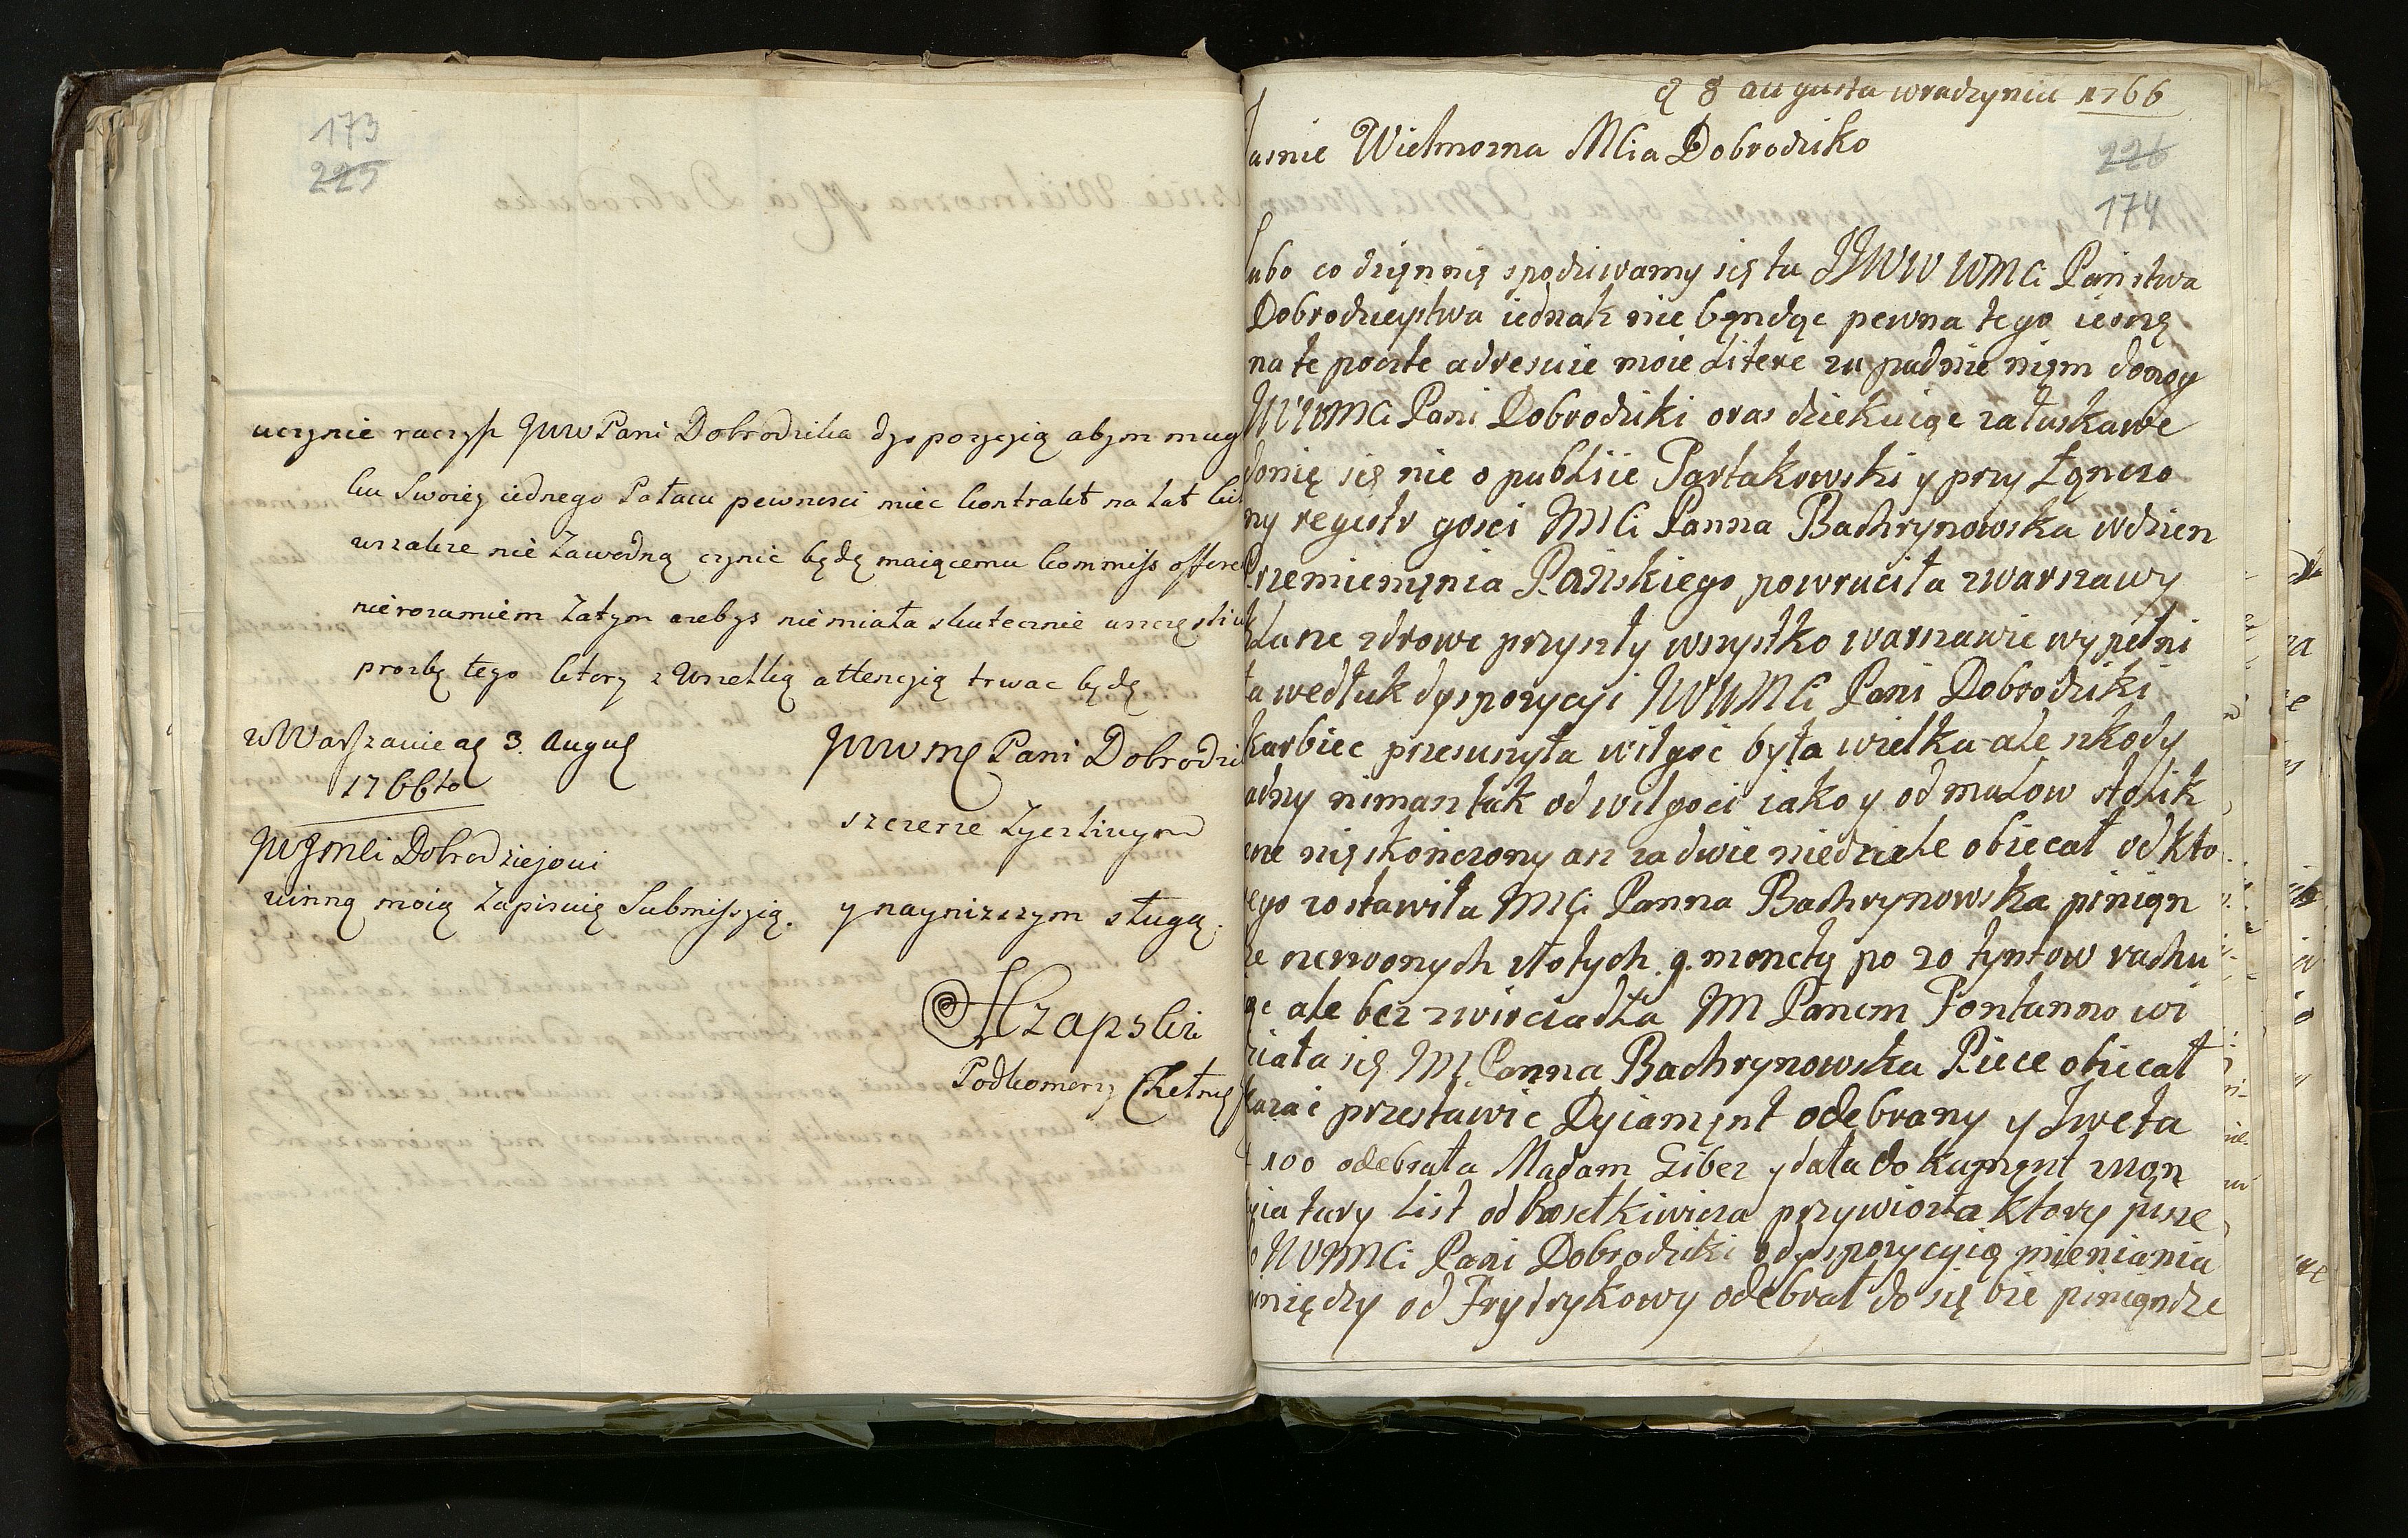 173
225
uczynić raczysz JWW Pani Dobrodzika dyspozycyią abym mug
ku Swoiey iednego Pałacu pewnosci miec kontrakt na lat
wszakze nie zawodną czynić będę maiącemu kommiss
nierozumiem Zatym azebys niemiała skutecznie
prozbę tego ktory z Wszelką attencyią trwac będę
w Warszawie 3. Augus
1766to
JWW Pani Dobrodzi
szczerze Zyczliwym
Dobrodziejowi
winną moią Zapisuię Submissyią.
y naynizszym sługą.
Czapski
Podkomorzy Chełm
8 augusta wradzyniu 1766
asnie Wielmozna MCia Dobrodziko
226
174
ubo co dzięnnię spodziwamy się tu JJWW WMCi Pąnstwa
Dobrodzieystwa iednak nie bęndąc pewna tego ieszę
na te poczte adresuie moie Litere zu padnie nięm donog
JWWMCi Pani Dobrodziki oras dziekuiąc załaskawe
donię się nie o publiie Tarłakowski y przy Łąnczo
ny regestr gosci MCi Panna Bachrynowska wdzien
Przemienięnia Pańskiego powruciła zwarszawy
zdrowe przyszły wszystko warszawie wy pełni
ła wedłuk dyspozycyi JWWMCi Pani Dobrodziki
karbiec przesuszyła wilgoć była wielka ale szkody
adny nimasz tak od wilgoci iako y od mulow stolik
nięskończony asz za dwie niedziele obiecał od kto
rego zostawiła MCi Panna Bachrynowska piniąn
ze czerwonych złotych 9. monetę po 20 tynfow rachu
ąc ale bez zwierciadła JM Panem Fontanno wi
ziała się M. Panna Bachrynowska Piece obiecał
kazać przestawić Dyiamęnt odebrany y Iweta
100 odebrała Madam Giber y dała do kumęnt
tury List od Rosełkiwicza przywiozła ktory pisze
o JWMCi Pani Dobrodziki o dyspozycyią mieniania
inię dzy od Frydrykowy odebrał do się bie piniąndze